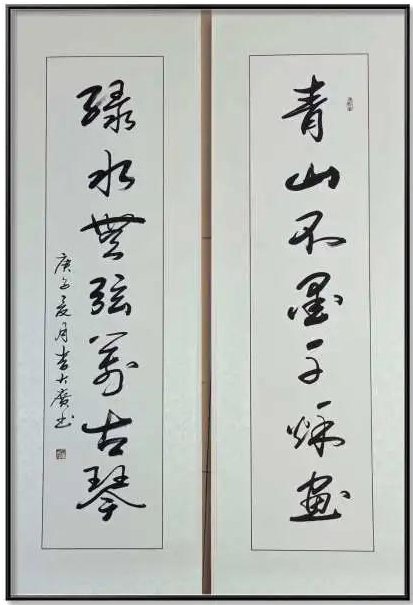 青山不墨千秋画
绿水無弦萬古琴
庚子夏月李大廣书